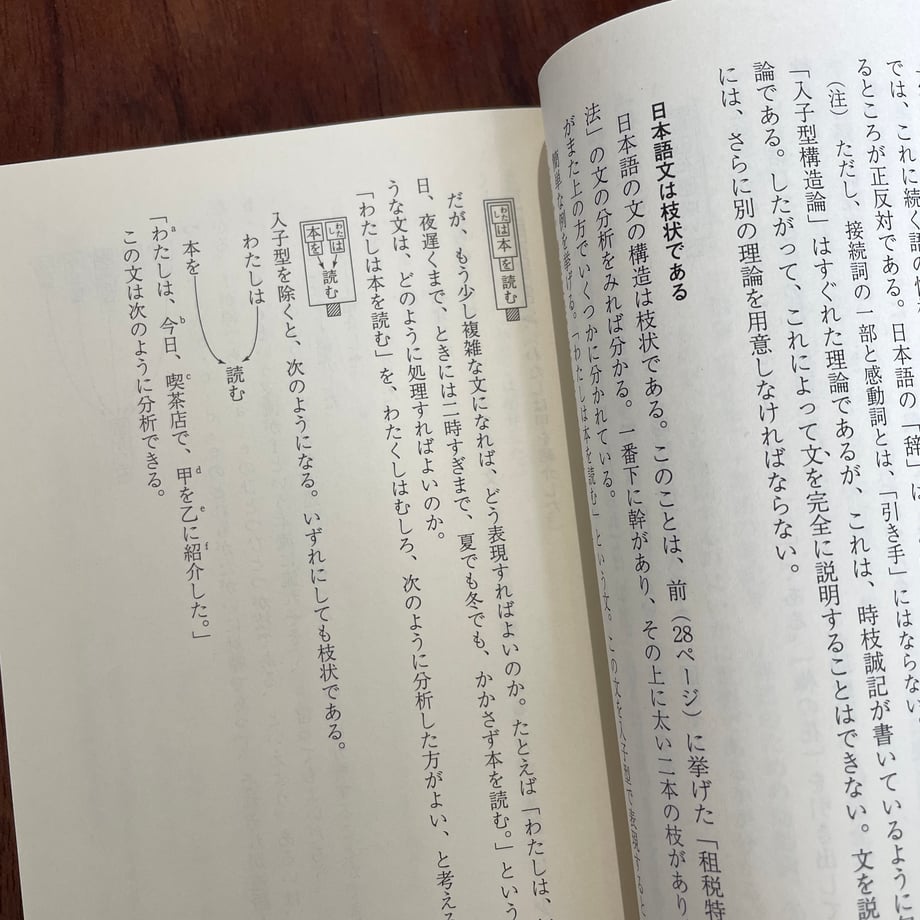 では、これに続く語の
るところが正反対である。日本語の「辞」は、
(注) ただし、接続詞の一部と感動詞とは、「引き手」にはならない
「入子型構造論」はすぐれた理論であるが、これは、時枝誠記が書いているように
論である。したがって、これによって文を完全に説明することはできない。文を説
には、さらに別の理論を用意しなければならない。
日本語文は枝状である
日本語の文の構造は枝状である。このことは、前(28ページ)に挙げた「租税特
法」の文の分析をみれば分かる。一番下に幹があり、その上に太い二本の枝があり
がまた上の方でいくつかに分かれている。
簡単な例を挙げる。「わたしは本を読む」という文。この文を入子型で表現すると
わたしは本を読む
だが、もう少し複雑な文になれば、どう表現すればよいのか。たとえば「わたしは、
日、夜遅くまで、ときには二時すぎまで、夏でも冬でも、かかさず本を読む。」という
うな文は、どのように処理すればよいのか。
「わたしは本を読む」を、わたくしはむしろ、次のように分析した方がよい、と考える
わたしは
本を
読む
入子型を除くと、次のようになる。いずれにしても枝状である。
わたしは
本を
読む
「わたしは、今日、喫茶店で、甲を乙に紹介した。」
a b c d e f
この文は次のように分析できる。